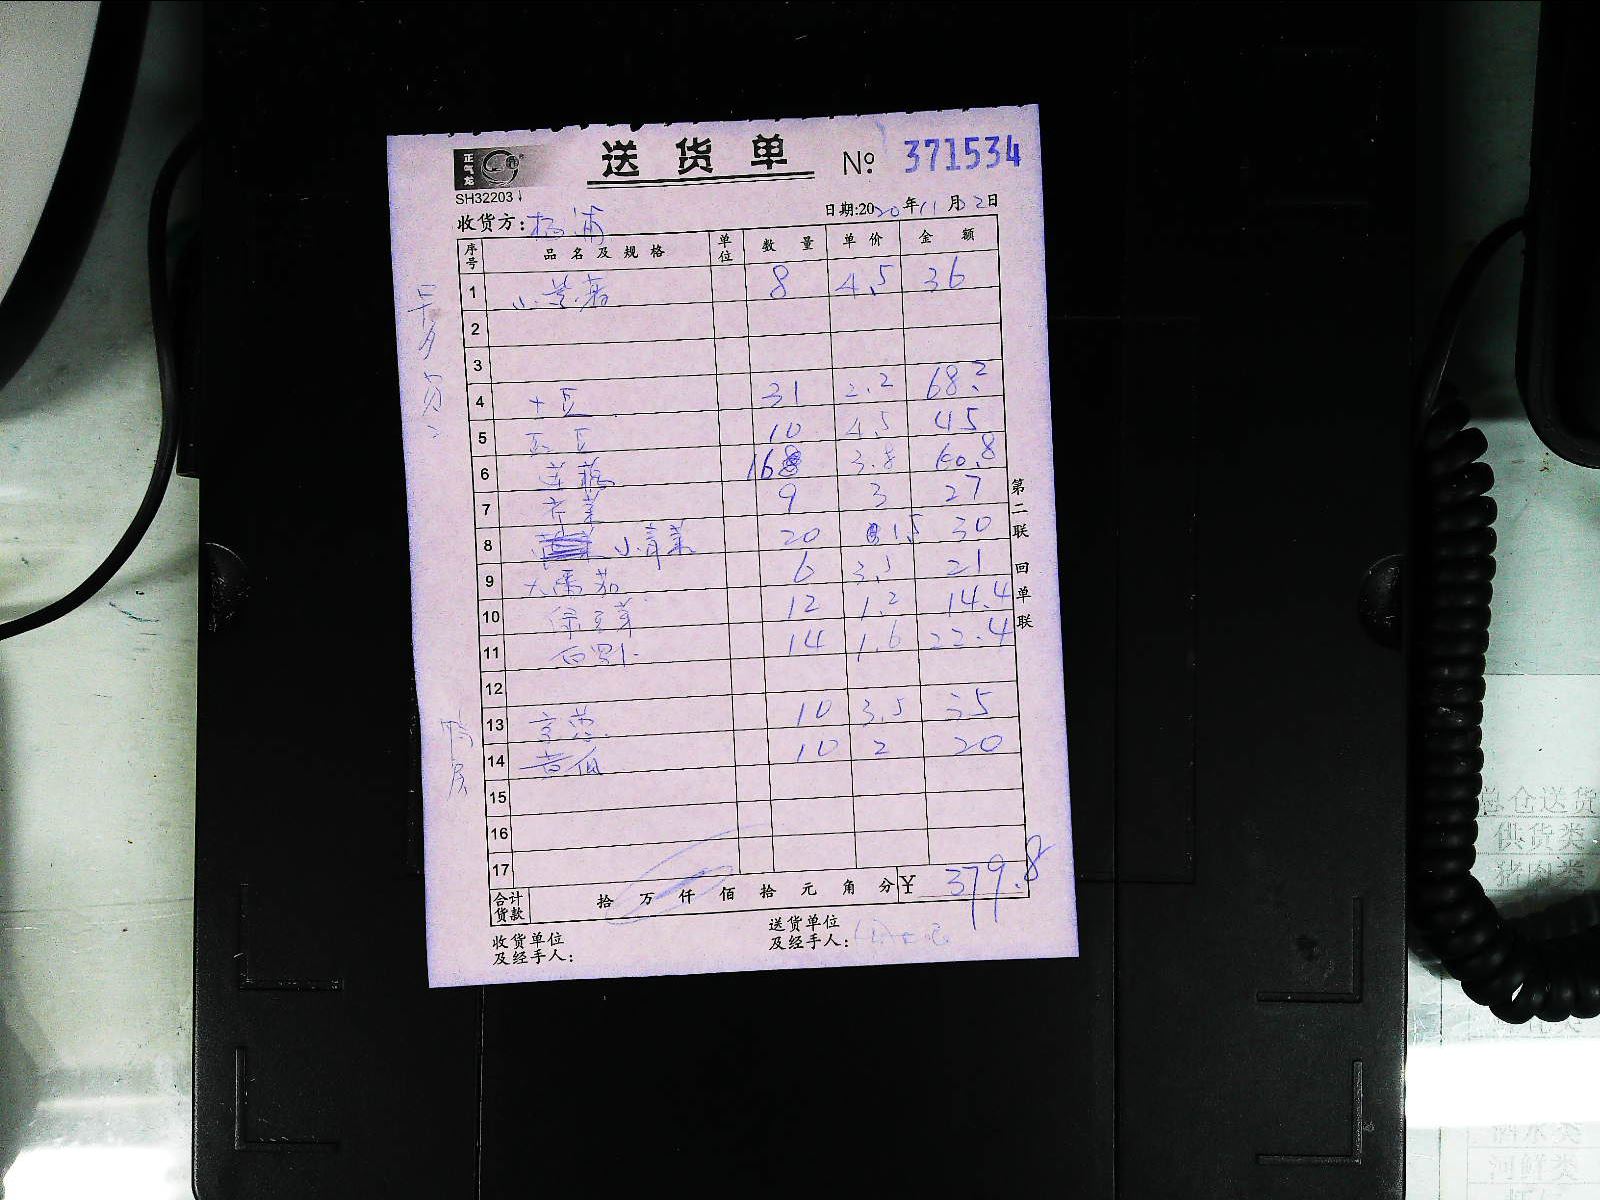 正气龙
送货单 № 371534
SH32203
日期:2020年11月02日
收货方:杨浦
序号 品名及规格 单位 数量 单价 金额
1 8 4.5 36
2
3
4 土豆 31 2.2 68.2
5 豇豆 10 4.5 45
6 莲藕 16 3.8 60.8
7 芹菜 9 3 27
8 小青菜 20 1.5 30
9 大番茄 6 3.5 21
10 绿豆芽 12 1.2 14.4
11 白罗卜 14 1.6 22.4
12
13 京葱 10 3.5 35
14 黄瓜 10 2 20
15
16
17
合计货款 拾 万 仟 佰 拾 元 角 分 ¥ 379.8
收货单位及经手人:
送货单位及经手人:
第二联 回单联
总仓送货
供货类
猪肉类
酒水类
河鲜类